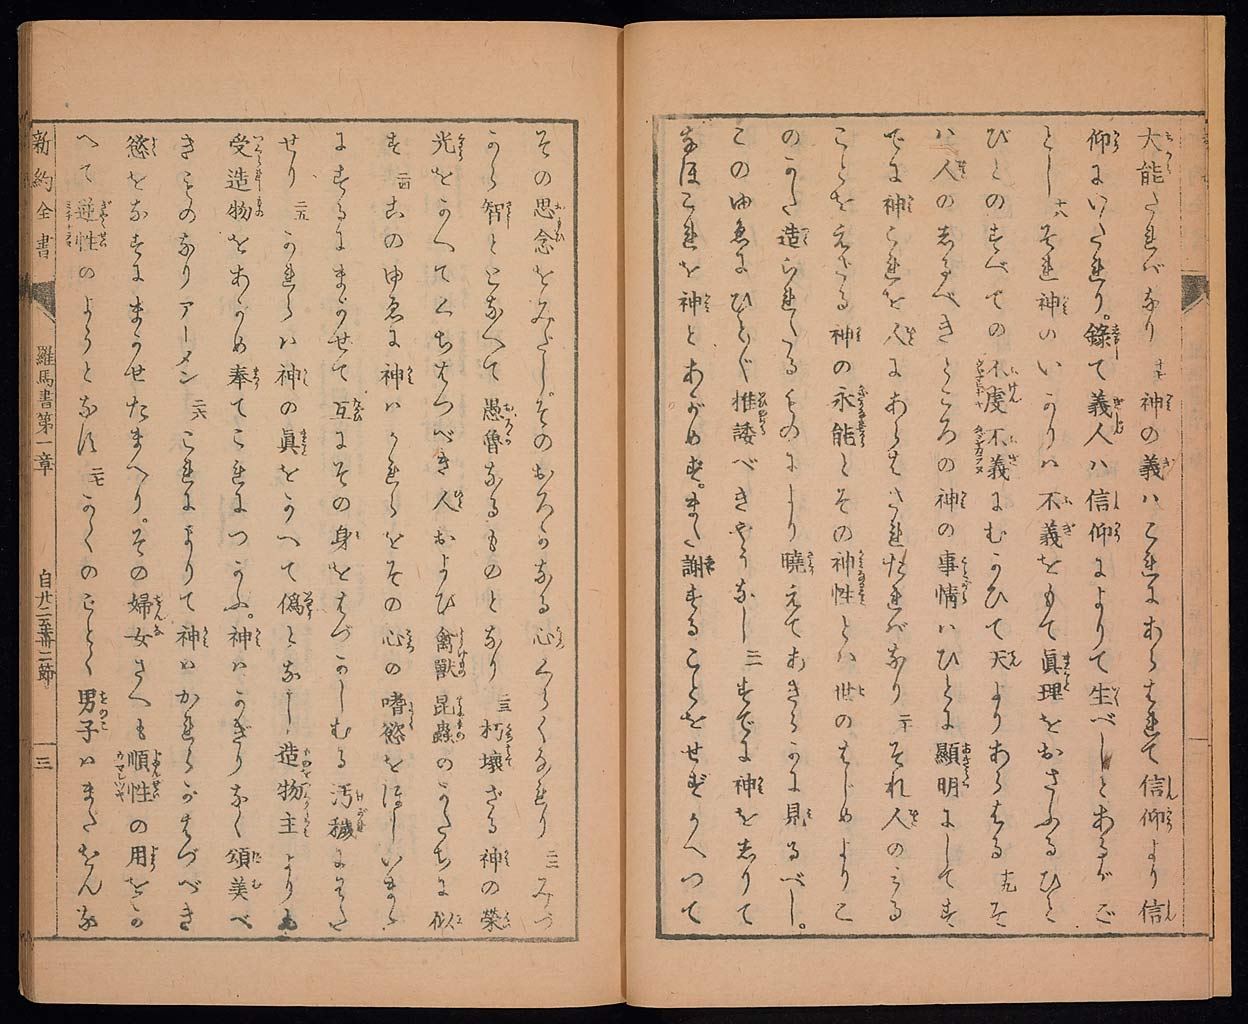 大能たればなり 十七 神の義ハこれにあらはれて信仰より信
仰にいたれり。錄て義人ハ信仰によりて生べしとあるがご
とし 十八 それ神のいかりハ不義をもて眞理をおさふるひと
びとのすべての不虔不義にむかひて天よりあらはる 十九 そ
ハ人のしるべきところの神の事情ハひとに顯明にしてす
でに神これを人にあらはされたればなり 二十 それ人のみる
ことをえざる神の永能とその神性とハ世のはじめよりこ
のかた造られたるものにより曉えてあきらかに見るべし。
このゆゑにひとびと推諉べきやうなし 二一 すでに神をしりて
なほこれを神とあがめず。また謝することをせずかへつて
その思念をみだし。そのおろかなる心くらくなれり 二二 みづ
から智ととなへて愚魯なるものとなり 二三 朽壞ざる神の榮
光をかへてくちはつべき人および禽獸昆蟲のかたちに似
す 二四 このゆゑに神ハかれらをその心の嗜慾をほしいまゝ
にするにまかせて互にその身をはづかしむる汚穢にわた
せり 二五 かれらハ神の眞をかへて僞となし造物主よりも
受造物をあがめ奉てこれにつかふ。神ハかぎりなく頌美べ
きものなりアーメン 二六 これによりて神ハかれらがはづべき
慾をなすにまかせたまへり。その婦女さへも順性の用をか
へて逆性のようとなす 二七 かくのごとく男子ハまたをんな
新約全書 羅馬書第一章 自廿二至卅二節 十三